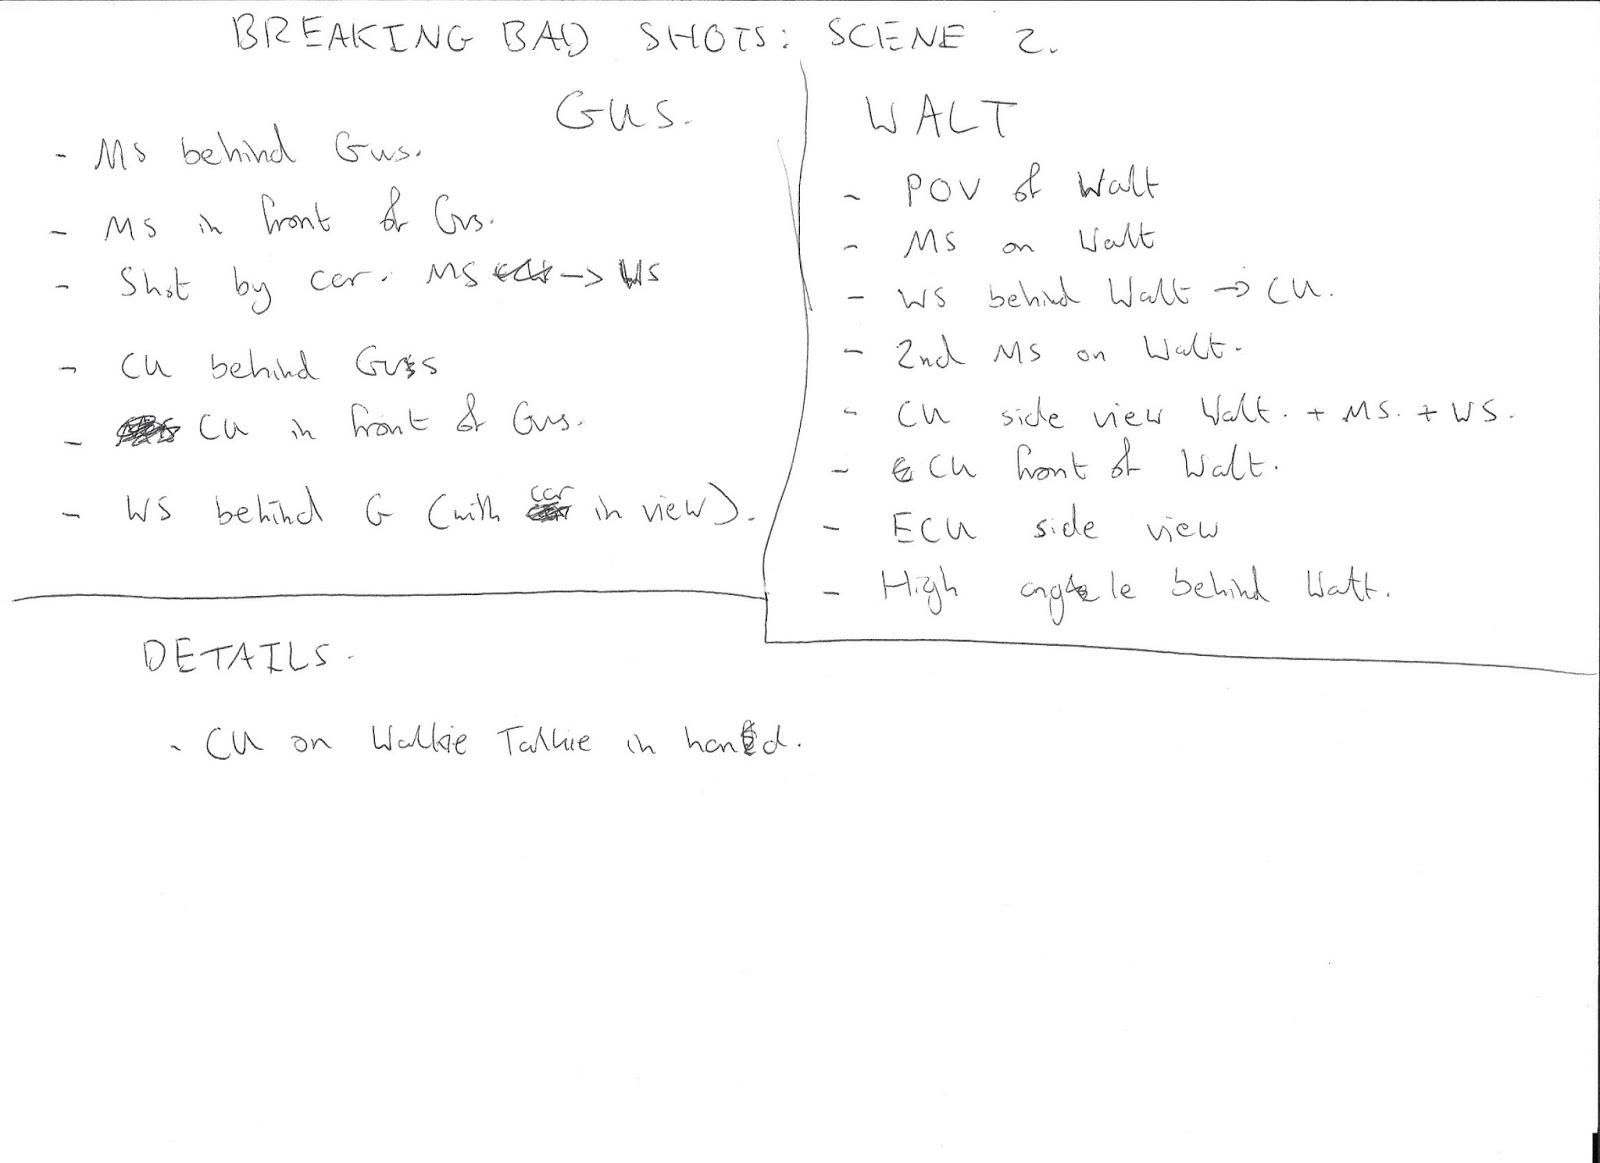 BREAKING BAD SHOTS: SCENE 2.
GUS.
- MS behind Gus.
- MS in front of Gus.
- Shot by car. MS -> WS
- CU behind Gus
- CU in front of Gus.
- WS behind G (with car in view).
WALT
- POV of Walt
- MS on Walt
- WS behind Walt -> CU.
- 2nd MS on Walt.
- CU side view Walt. + MS. + WS.
- CU front of Walt.
- ECU side view
- High angle behind Walt.
DETAILS.
- CU on Walkie Talkie in hand.